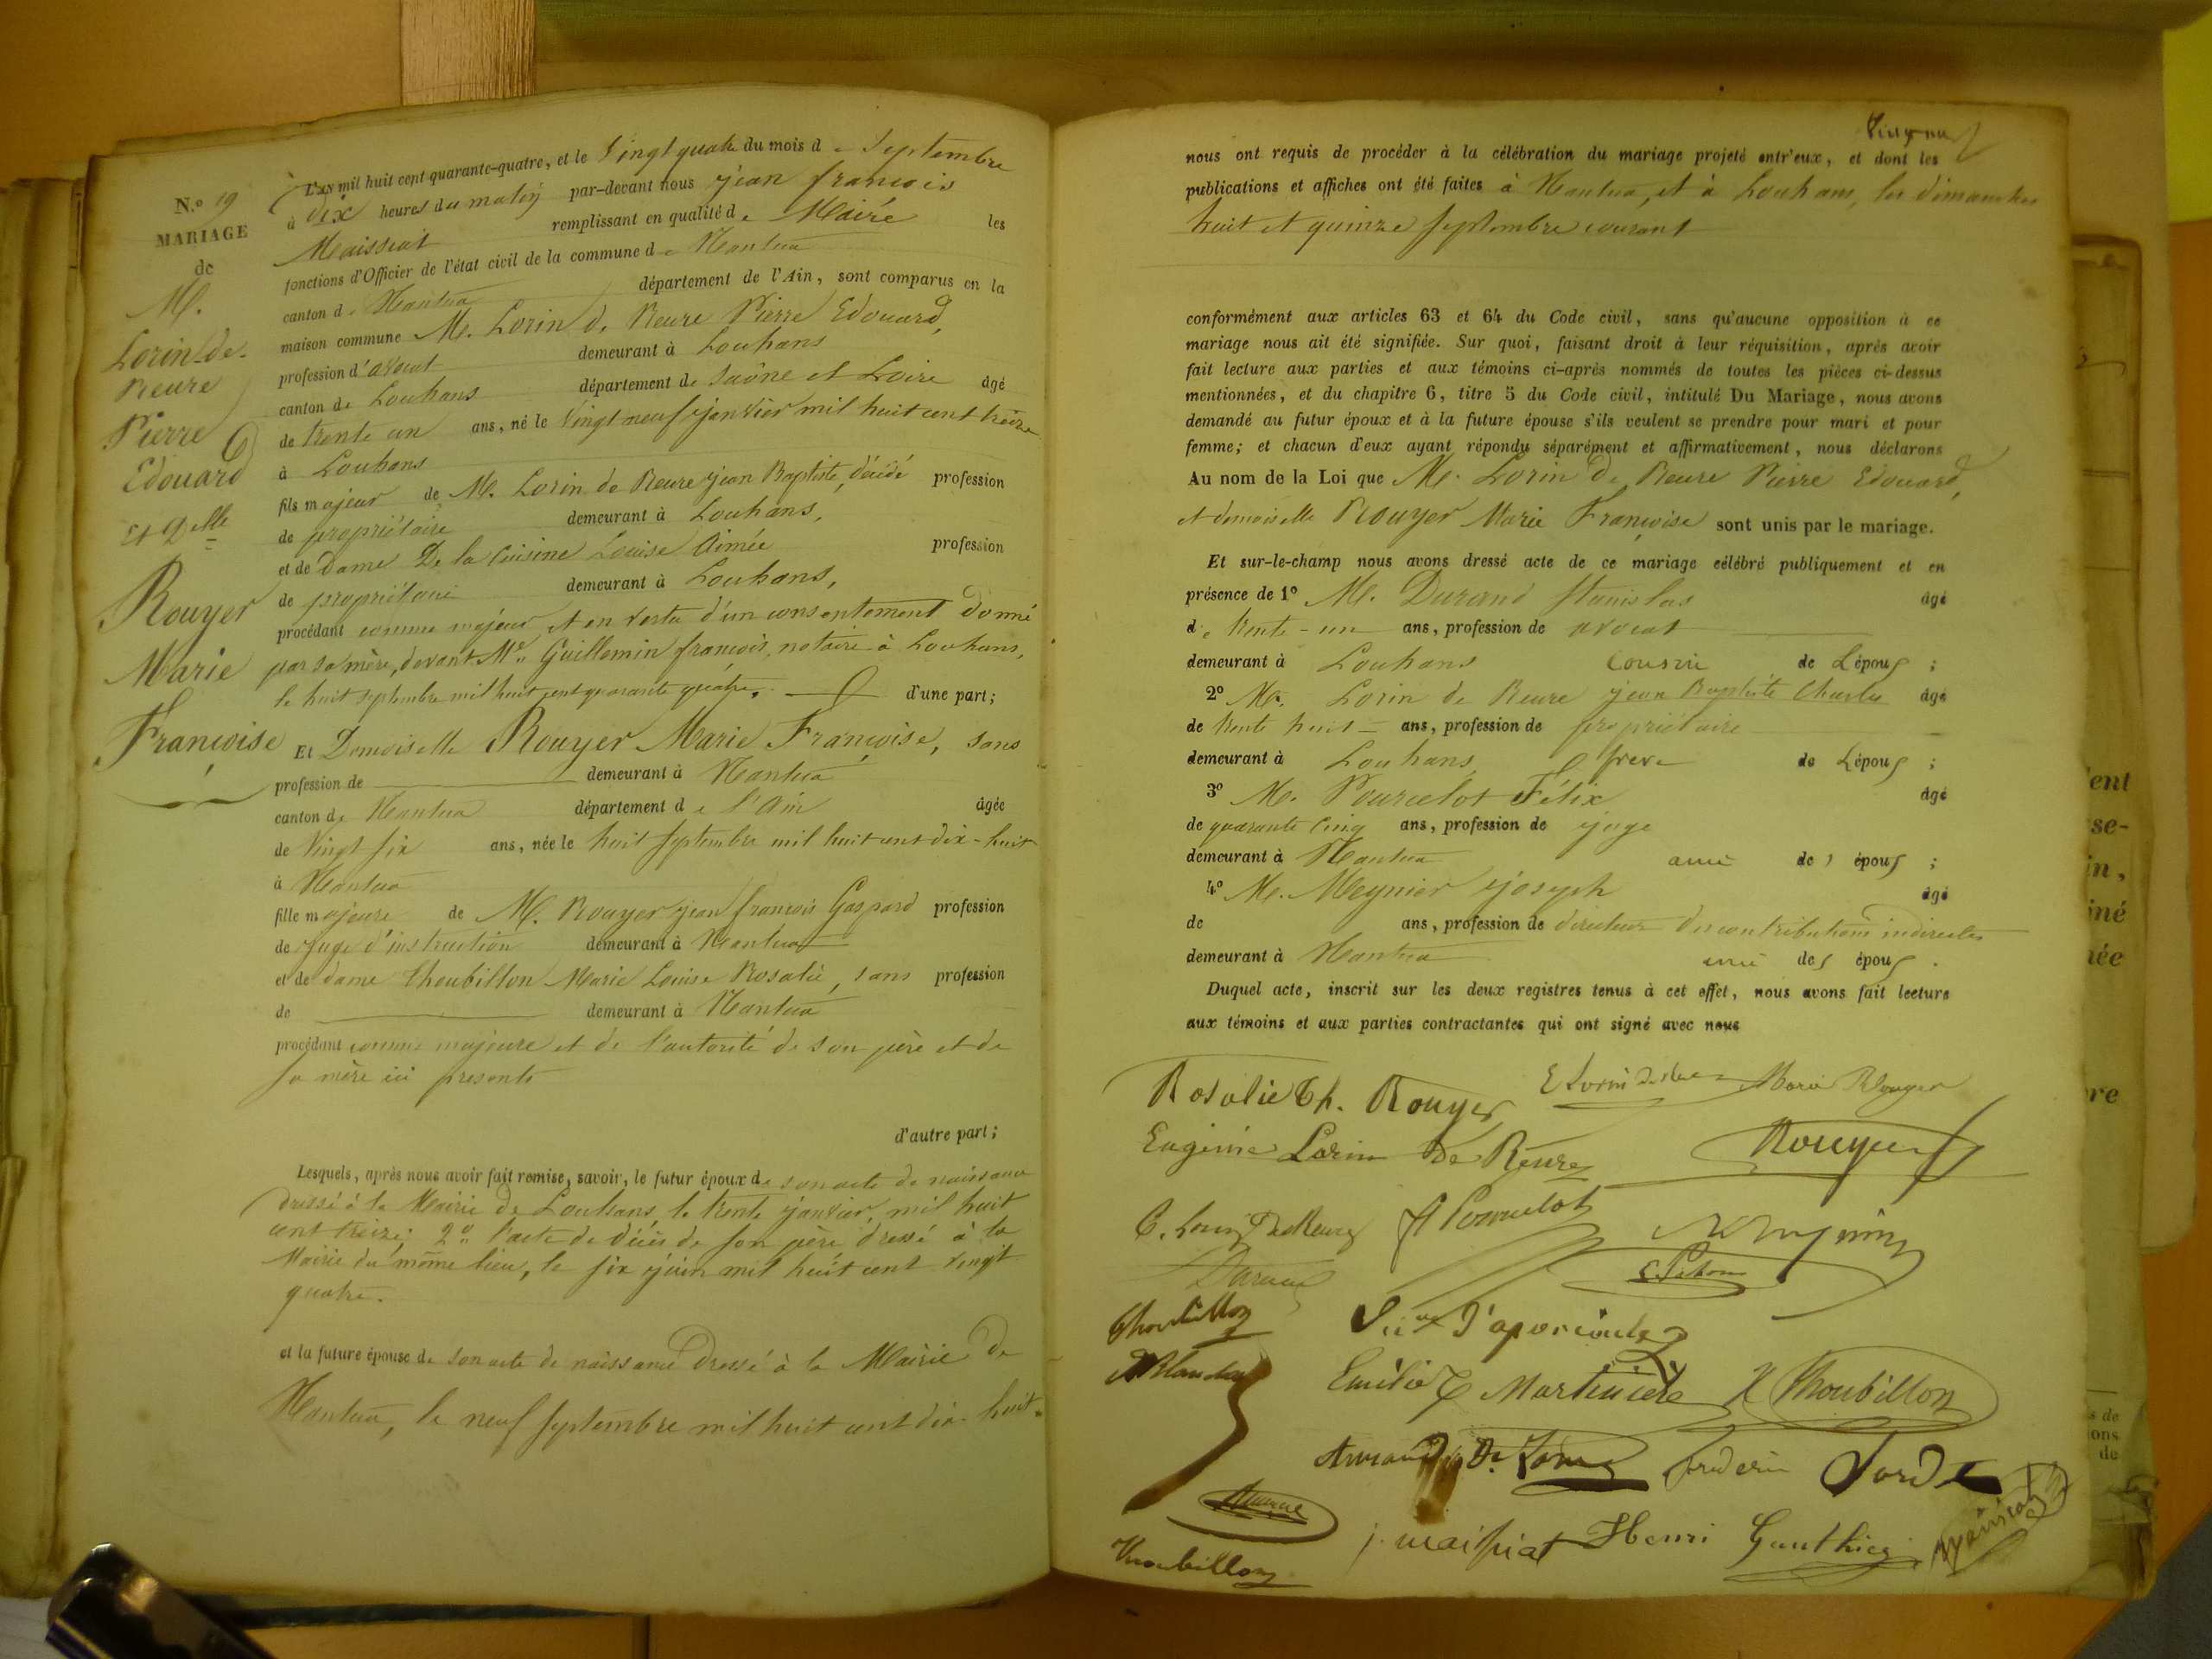 N.o 19
MARIAGE
de
M.
Lorin-de-
Reure
Pierre
Edouard
et Delle
Rouyer
Marie
Françoise
L'an mil huit cent quarante-quatre, et le Vingt quatre du mois de Septembre
à dix heures du matin par-devant nous jean françois
Maissiat remplissant en qualité de Maire les
fonctions d'Officier de l'état civil de la commune de Nantua
canton de Nantua département de l'Ain, sont comparus en la
maison commune M. Lorin de Reure Pierre Edouard,
profession d'avocat demeurant à Louhans
canton de Louhans département de Saône et Loire âgé
de trente un ans, né le Vingt neuf janvier mil huit cent treize
à Louhans
fils majeur de M. Lorin de Reure jean Baptiste, décédé profession
de propriétaire demeurant à Louhans,
et de Dame De la Cuisine Louise Aimée profession
de propriétaire demeurant à Louhans,
procédant comme majeur et en vertu d'un consentement donné
par sa mère, devant Me Guillemin françois, notaire à Louhans,
le huit septembre mil huit cent quarante quatre. d'une part;
Et Demoiselle Rouyer Marie Françoise, sans
profession de demeurant à Nantua
canton de Nantua département de l'Ain âgée
de Vingt six ans, née le huit septembre mil huit cent dix-huit
à Nantua
fille majeure de M. Rouyer jean françois Gaspard profession
de juge d'instruction demeurant à Nantua
et de dame Thoubillon Marie Louise Rosalie, sans profession
de demeurant à Nantua
procédant comme majeure et de l'autorité de son père et de
sa mère ici présents
d'autre part;
Lesquels, après nous avoir fait remise, savoir, le futur époux de son acte de naissance
dressé à la Mairie de Louhans le trente janvier, mil huit
cent treize; 2o l'acte de décès de son père dressé à la
Mairie du même lieu, le six juin mil huit cent vingt
quatre.
et la future épouse de son acte de naissance dressé à la Mairie de
Nantua, le neuf septembre mil huit cent dix-huit.
nous ont requis de procéder à la célébration du mariage projeté entr'eux, et dont les
publications et affiches ont été faites à Nantua, et à Louhans, les dimanches
huit et quinze septembre courant
conformément aux articles 63 et 64 du Code civil, sans qu'aucune opposition à ce
mariage nous ait été signifiée. Sur quoi, faisant droit à leur réquisition, après avoir
fait lecture aux parties et aux témoins ci-après nommés de toutes les pièces ci-dessus
mentionnées, et du chapitre 6, titre 5 du Code civil, intitulé Du Mariage, nous avons
demandé au futur époux et à la future épouse s'ils veulent se prendre pour mari et pour
femme; et chacun d'eux ayant répondu séparément et affirmativement, nous déclarons
Au nom de la Loi que M. Lorin de Reure Pierre Edouard,
et demoiselle Rouyer Marie Françoise sont unis par le mariage.
Et sur-le-champ nous avons dressé acte de ce mariage célébré publiquement et en
présence de 1o M. Durand Stanislas âgé
de trente-un ans, profession de avocat
demeurant à Louhans Cousin de L'époux;
2o M. Lorin de Reure jean Baptiste Charles âgé
de trente huit ans, profession de propriétaire
demeurant à Louhans, frere de L'époux;
3o M. Pourcelot Félix âgé
de quarante Cinq ans, profession de juge
demeurant à Nantua ami des époux;
4o M. Meynier joseph âgé
de ans, profession de directeur des contributions indirectes
demeurant à Nantua ami des époux.
Duquel acte, inscrit sur les deux registres tenus à cet effet, nous avons fait lecture
aux témoins et aux parties contractantes qui ont signé avec nous
Rosalie Th. Rouyer E Lorin de Reure Marie Rouyer
Eugénie Lorin De Reure Rouyer
C. Lorin De Reure Pourcelot
Durand
Thoubillon
Emilie Martinière Thoubillon
Armand
j. maissiat Henri Gauthier Maissiat
Thoubillon